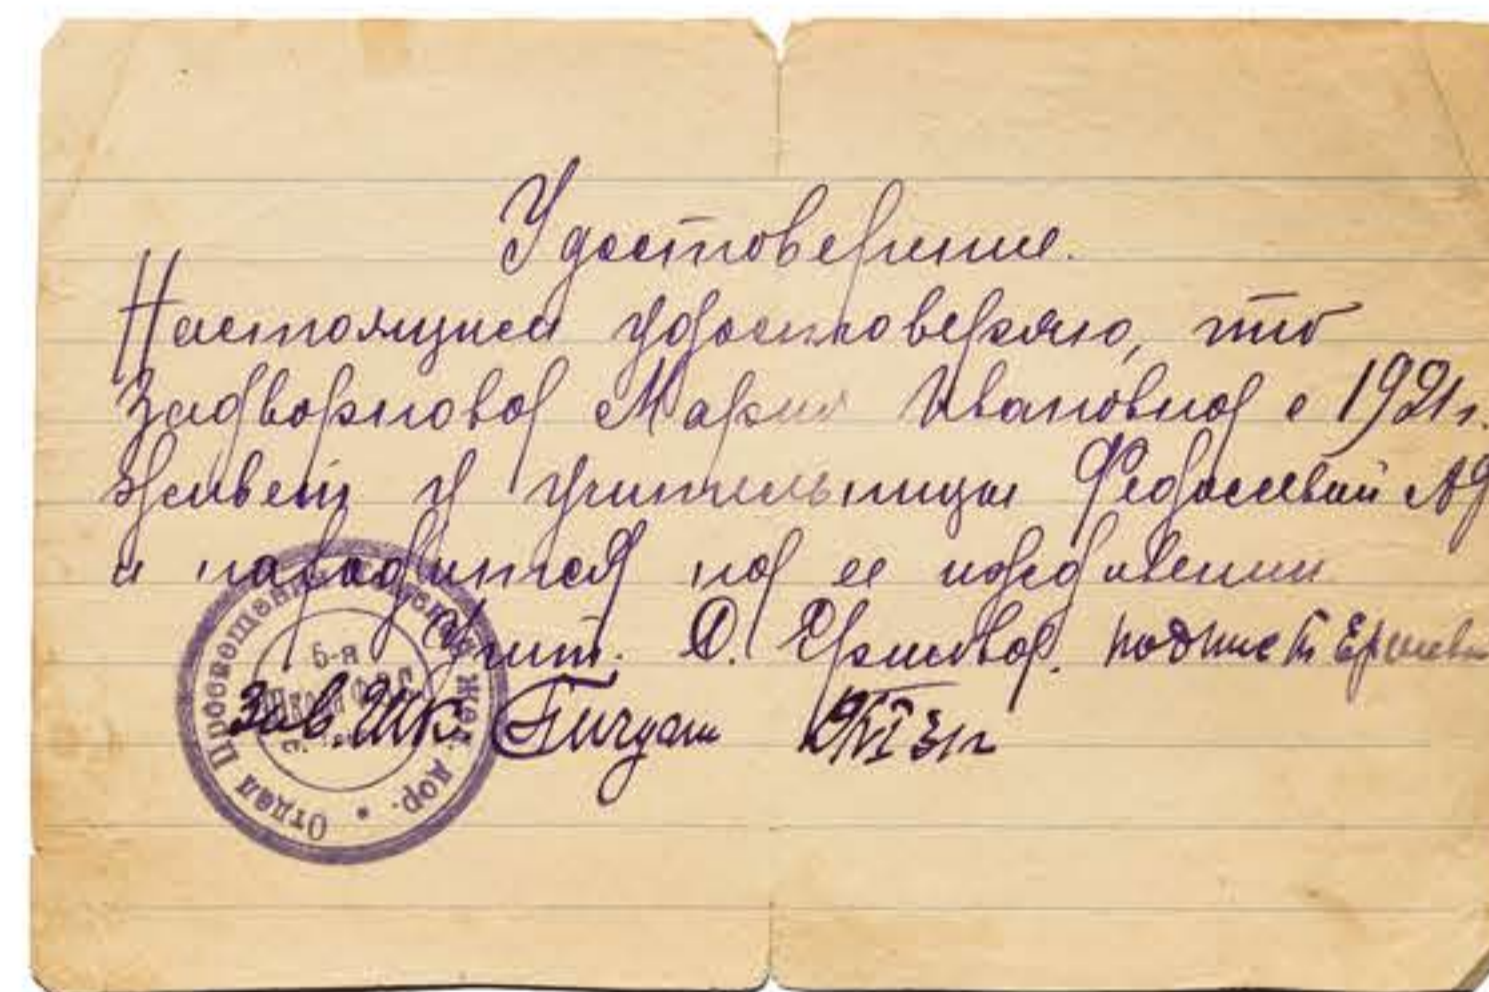 Удостоверение.
Настоящим удостоверяю, что
Задворнова Мария Ивановна с 1921г.
живет у учительницы Федосеевой
и находится на ее иждивении
Учит. О. Ершова. подпись т Ершовой
Зав. Шк. 31г
Отдел Просвещения жел. дор.
5-я